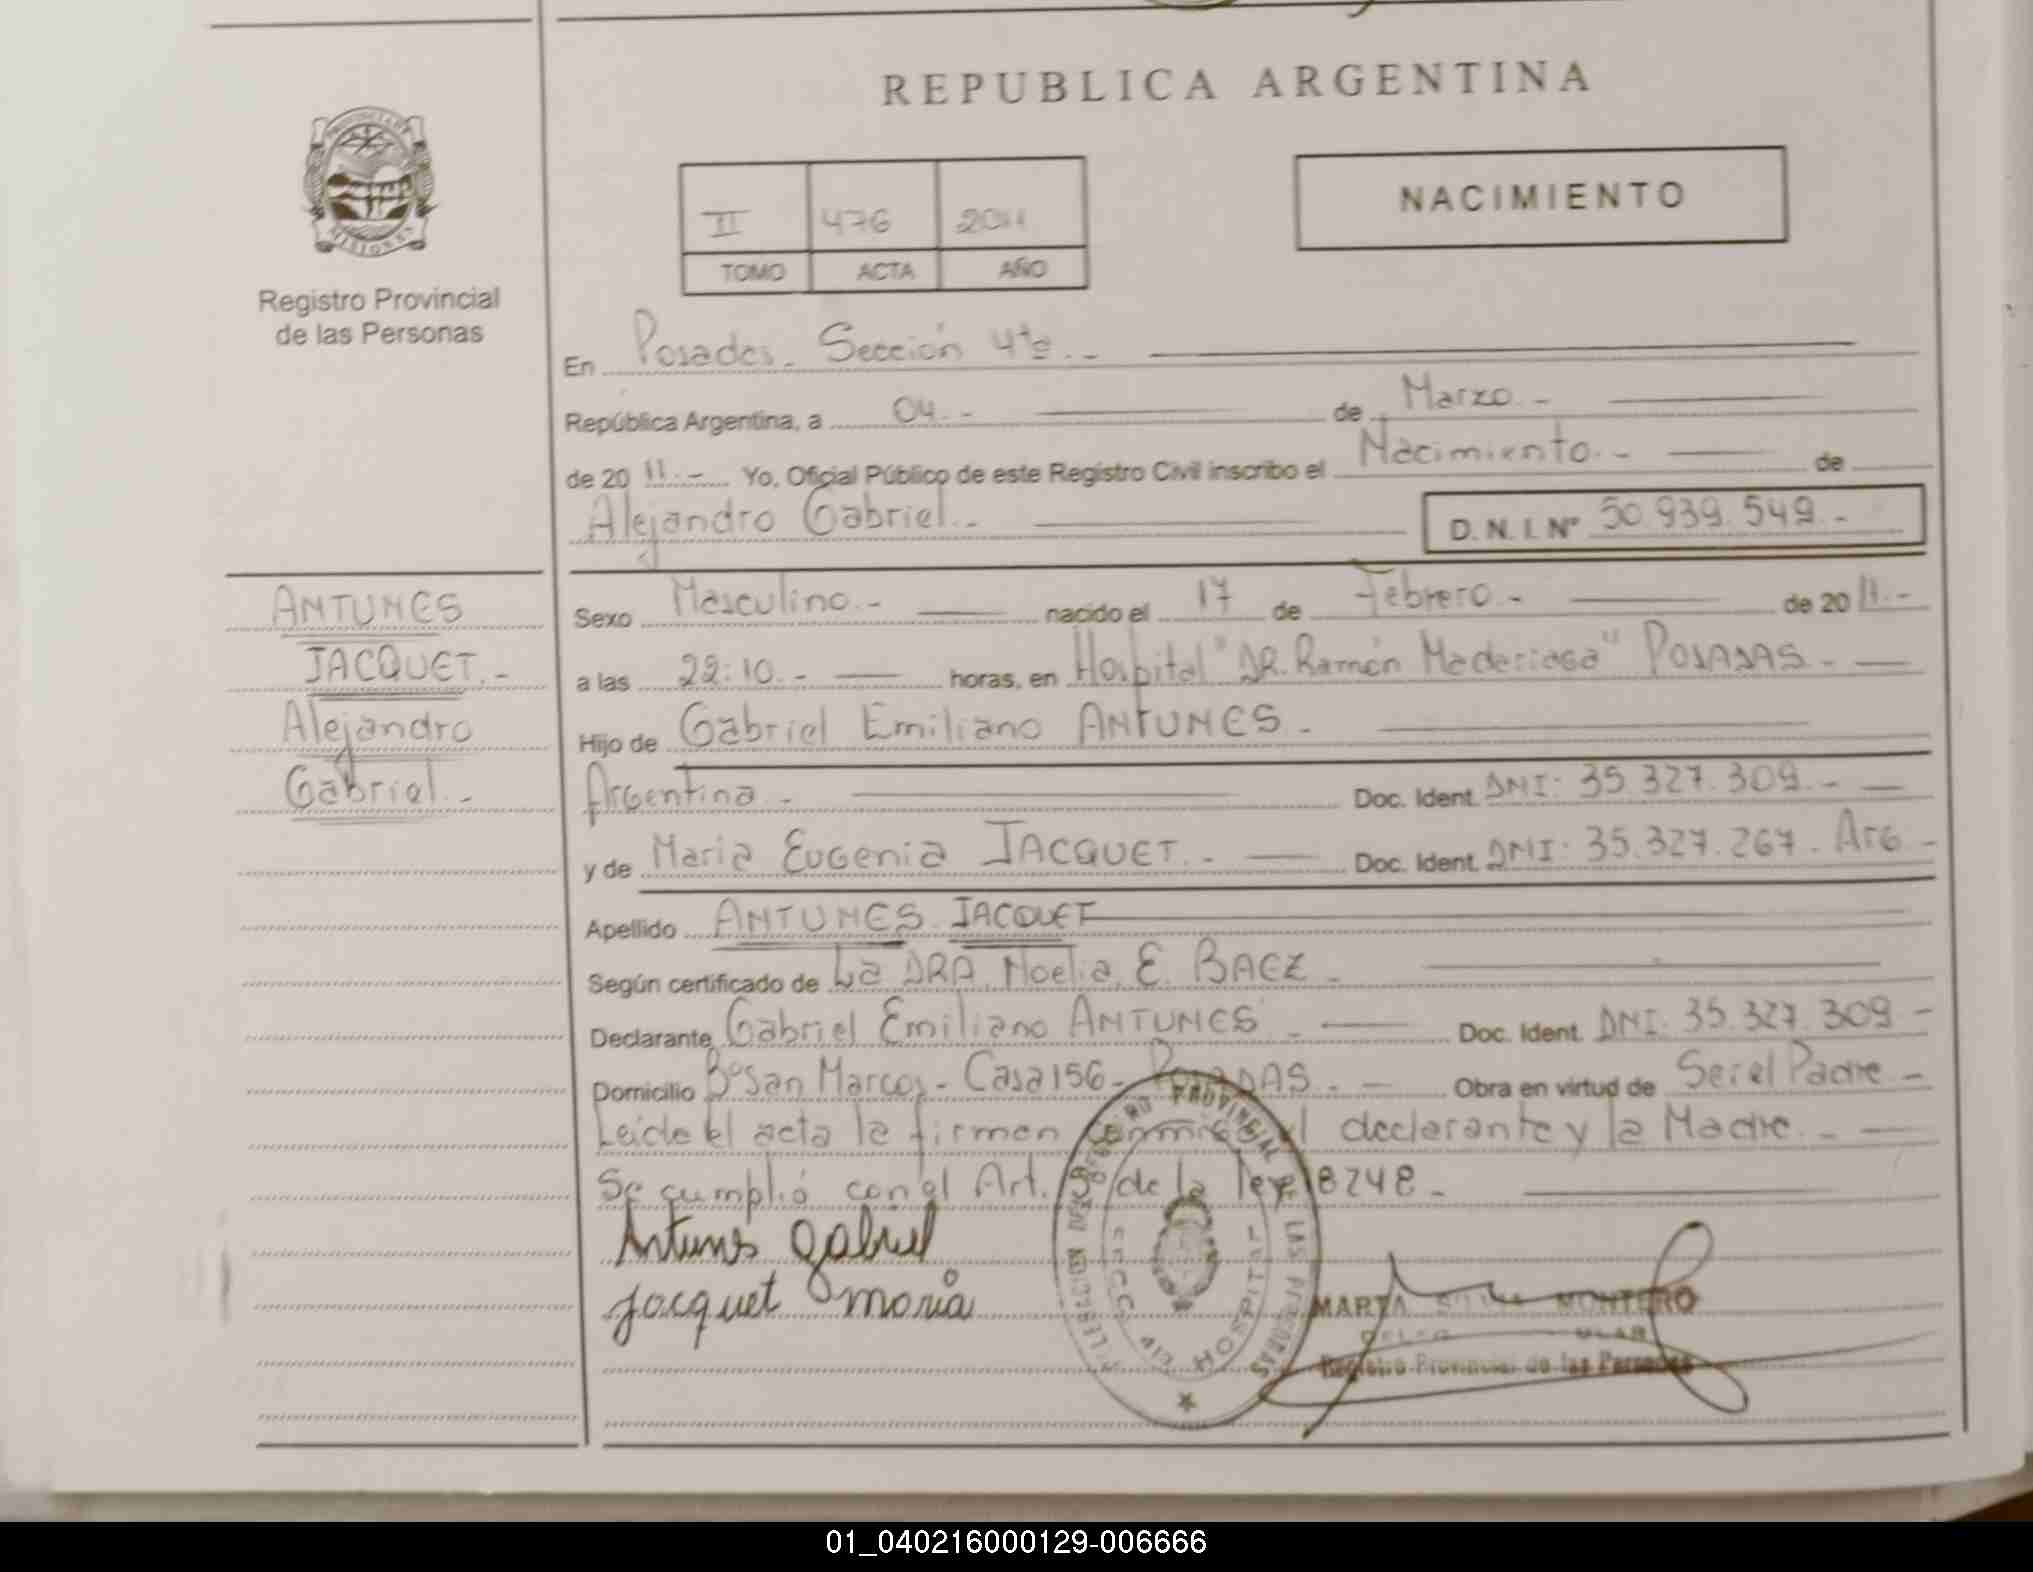 REPUBLICA ARGENTINA
PROVINCIA DE
MISIONES
Registro Provincial
de las Personas
II 476 2011
TOMO ACTA AÑO
NACIMIENTO
En Posadas. Sección 4ta. -
República Argentina, a 04. - de Marzo. -
de 20 11. - Yo, Oficial Público de este Registro Civil inscribo el Nacimiento. - de
Alejandro Gabriel. - D. N. I. Nº 50.939.549. -
ANTUNES
JACQUET. -
Alejandro
Gabriel. -
Sexo Masculino. - nacido el 17 de Febrero. - de 20 11. -
a las 22:10. - horas, en Hospital "DR. Ramón Madariaga" POSADAS. -
Hijo de Gabriel Emiliano ANTUNES. -
Argentina. - Doc. Ident. DNI: 35.327.309. -
y de Maria Eugenia JACQUET. - Doc. Ident. DNI: 35.327.267. Arg -
Apellido ANTUNES JACQUET
Según certificado de La DRA. Noelia. E. BAEZ. -
Declarante Gabriel Emiliano ANTUNES. - Doc. Ident. DNI. 35.327.309 -
Domicilio Bº San Marcos - Casa 156 - POSADAS. - Obra en virtud de Ser el Padre -
Leida el acta la firman conmigo el declarante y la Madre. -
Se cumplió con el Art. de la ley 18248. -
Antunes gabriel
Jacquet maria
REGISTRO PROVINCIAL DE LAS PERSONAS
SECC. 4ta HOSPITAL
MARTA MONTERO
Registro Provincial de las Personas
01_040216000129-006666